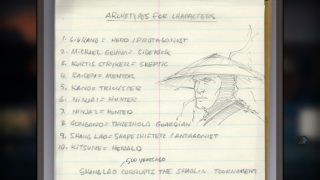 ARCHETYPES FOR CHARACTERS
1. LIU KANG = HERO / PROTAGONIST
2. MICHAEL GRIMM = SIDEKICK
3. KURTIS STRYKER = SKEPTIC
4. RAIDEN = MENTOR
5. KANO = TRICKSTER
6. NINJA 1 = HUNTER
7. NINJA 2 = HUNTED
8. GONGORO = THRESHOLD GUARDIAN
9. SHANG LAO = SHAPE SHIFTER / ANTAGONIST
10. KITSUNE = HERALD
500 YEARS AGO
SHANG LAO CORRUPTS THE SHAOLIN TOURNAMENT